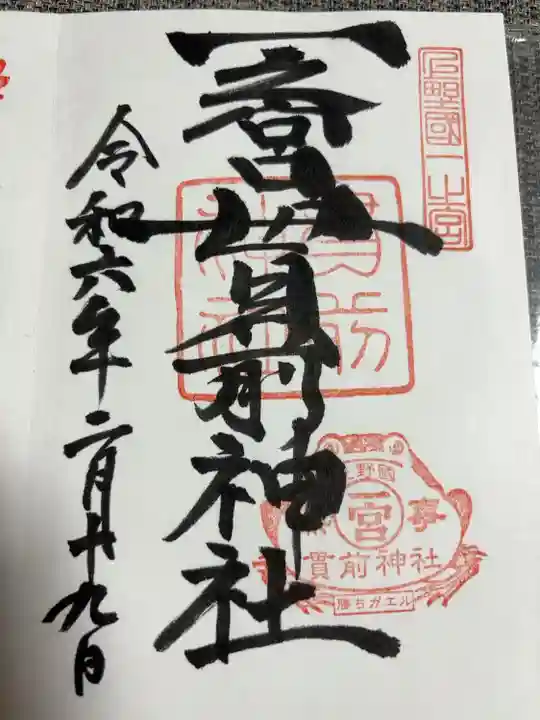 上野國一之宮
一之宮貫前神社
貫前神社
野國
一宮
無事
貫前神社
勝ちガエル
令和六年二月廿九日